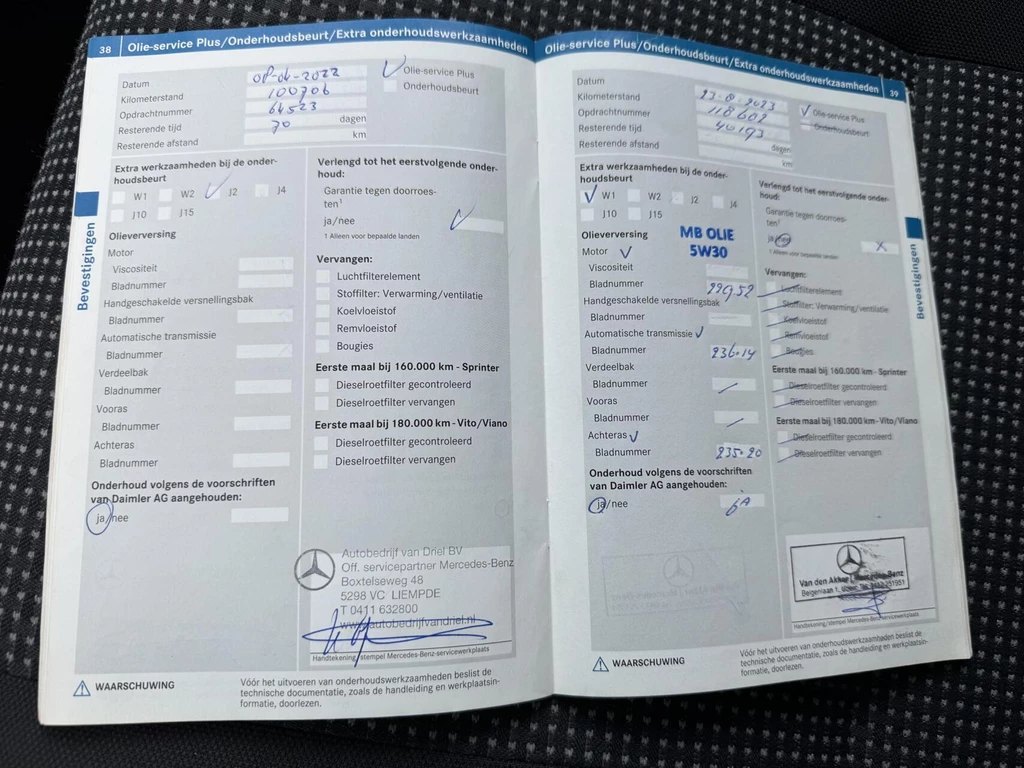 38 Olie-service Plus/Onderhoudsbeurt/Extra onderhoudswerkzaamheden
Datum 08-04-2022
Kilometerstand 100706
Opdrachtnummer 64523
Resterende tijd 70 dagen
Resterende afstand km
Olie-service Plus
Onderhoudsbeurt
Extra werkzaamheden bij de onder-
houdsbeurt
W1 W2 J2 J4
J10 J15
Olieverversing
Motor
Viscositeit
Bladnummer
Handgeschakelde versnellingsbak
Bladnummer
Automatische transmissie
Bladnummer
Verdeelbak
Bladnummer
Vooras
Bladnummer
Achteras
Bladnummer
Onderhoud volgens de voorschriften
van Daimler AG aangehouden:
ja/nee
Verlengd tot het eerstvolgende onder-
houd:
Garantie tegen doorroes-
ten¹
ja/nee
1 Alleen voor bepaalde landen
Vervangen:
Luchtfilterelement
Stoffilter: Verwarming/ventilatie
Koelvloeistof
Remvloeistof
Bougies
Eerste maal bij 160.000 km - Sprinter
Dieselroetfilter gecontroleerd
Dieselroetfilter vervangen
Eerste maal bij 180.000 km - Vito/Viano
Dieselroetfilter gecontroleerd
Dieselroetfilter vervangen
Autobedrijf van Driel BV
Off. servicepartner Mercedes-Benz
Boxtelseweg 48
5298 VC LIEMPDE
T 0411 632800
www.autobedrijfvandriel.nl
Handtekening/stempel Mercedes-Benz-servicewerkplaats
WAARSCHUWING
Vóór het uitvoeren van onderhoudswerkzaamheden beslist de
technische documentatie, zoals de handleiding en werkplaatsin-
formatie, doorlezen.
Bevestigingen
Olie-service Plus/Onderhoudsbeurt/Extra onderhoudswerkzaamheden 39
Datum 23-8-2023
Kilometerstand 118602
Opdrachtnummer 40193
Resterende tijd dagen
Resterende afstand km
Olie-service Plus
Onderhoudsbeurt
Extra werkzaamheden bij de onder-
houdsbeurt
W1 W2 J2 J4
J10 J15
Olieverversing MB OLIE
Motor 5W30
Viscositeit
Bladnummer 229.52
Handgeschakelde versnellingsbak
Bladnummer
Automatische transmissie
Bladnummer 236.14
Verdeelbak
Bladnummer
Vooras
Bladnummer
Achteras
Bladnummer 235.20
Onderhoud volgens de voorschriften
van Daimler AG aangehouden:
ja/nee jA
Verlengd tot het eerstvolgende onder-
houd:
Garantie tegen doorroes-
ten¹
ja/nee X
1 Alleen voor bepaalde landen
Vervangen:
Luchtfilterelement
Stoffilter: Verwarming/ventilatie
Koelvloeistof
Remvloeistof
Bougies
Eerste maal bij 160.000 km - Sprinter
Dieselroetfilter gecontroleerd
Dieselroetfilter vervangen
Eerste maal bij 180.000 km - Vito/Viano
Dieselroetfilter gecontroleerd
Dieselroetfilter vervangen
Van den Akker Mercedes-Benz
Handtekening/stempel Mercedes-Benz-servicewerkplaats
WAARSCHUWING
Vóór het uitvoeren van onderhoudswerkzaamheden beslist de
technische documentatie, zoals de handleiding en werkplaatsin-
formatie, doorlezen.
Bevestigingen